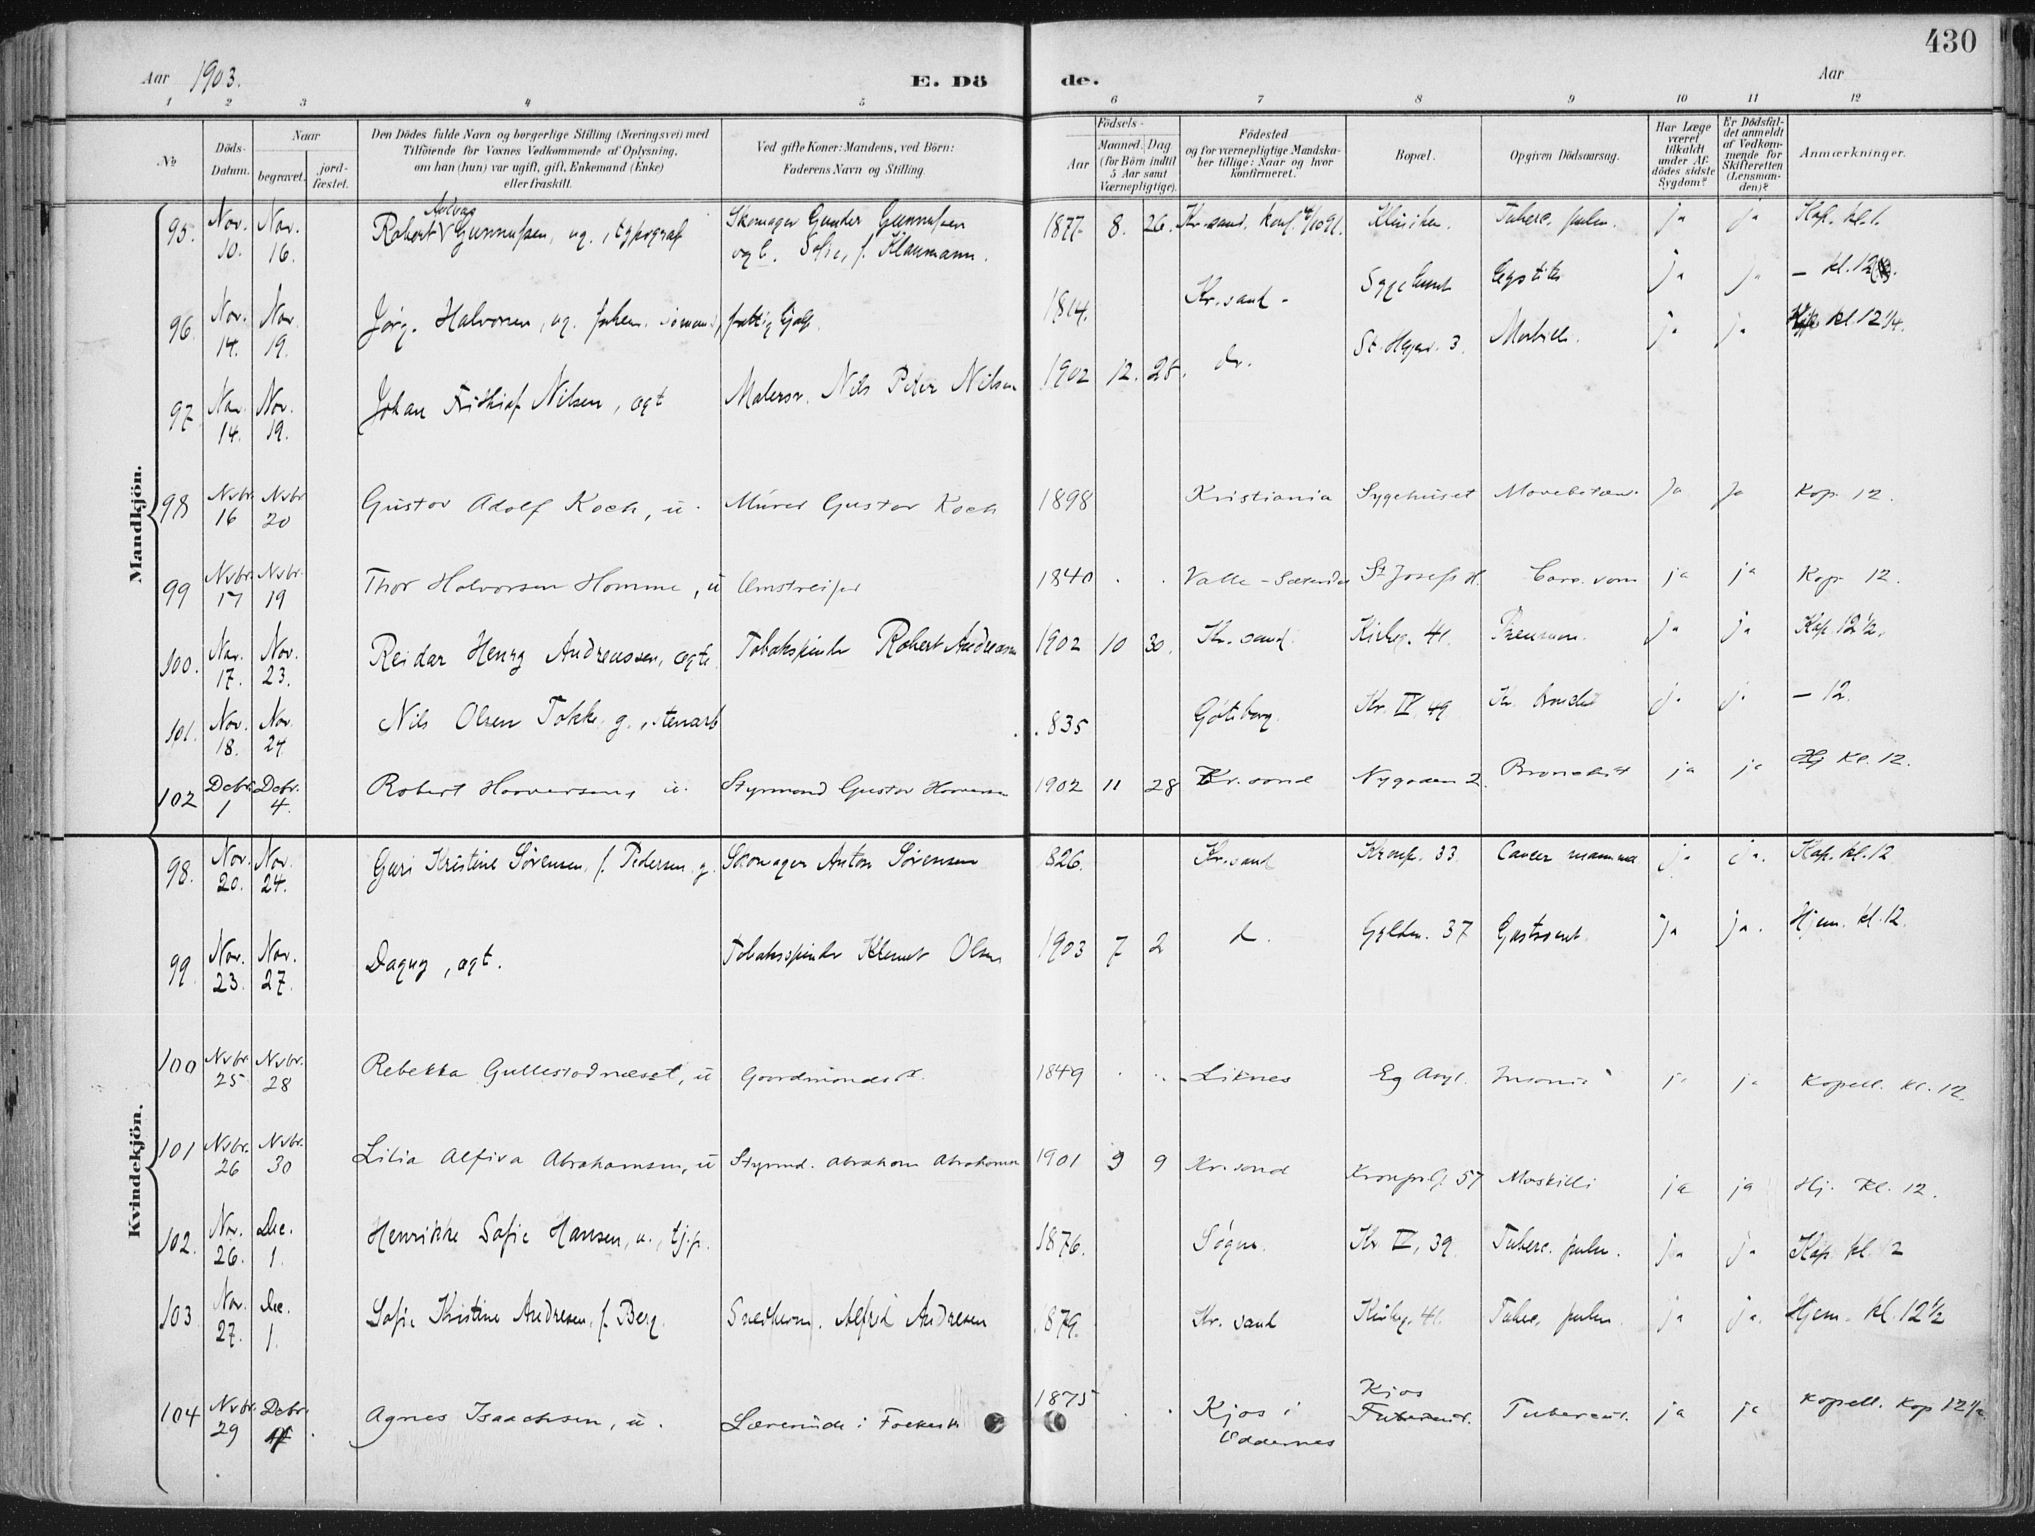 430
Aar 1903.
E. Dö de.
Aar
1 2 3 4 5 6 7 8 9 10 11 12
No
Döds-Datum.
Naar
begravet.
jord-fæstet.
Den Dödes fulde Navn og borgerlige Stilling (Næringsvei) med
Tilföiende for Voxnes Vedkommende af Oplysning,
om han (hun) var ugift, gift, Enkemand (Enke)
eller fraskilt.
Ved gifte Koner: Mandens, ved Börn:
Faderens Navn og Stilling.
Födsels-
Aar
Maaned. Dag
(for Börn indtil
5 Aar samt
Værnepligtige).
Födested
og for værnepligtige Mandska-
ber tillige: Naar og hvor
konfirmeret.
Bopæl.
Opgiven Dödsaarsag.
Har Læge
været
tilkaldt
under Af-
dödes sidste
Sygdom?
Er Dödsfal-
det anmeldt
af Vedkom-
mende for
Skifteretten
(Lensman-
den)?
Anmærkninger.
Mandkjön.
95. Nov. 10. Nov. 16. Robert Gunnufsen, ug., typograf Skomager Gunder Gunnufsen og h. Sofie, f. Klaumann. 1877. 8. 26. Kr.sand. konf. 4/10 91. Kliniken. Tuberc. pulm. ja ja Kap. kl. 1.
96. Nov. 14. Nov. 19. Jörg. Halvorsen, ug. fuhen. sömand, fattighjelp. 1814. Kr.sand - Sygehuset Cystitis ja ja - kl. 12
97. Nov. 14. Nov. 19. Johan Fridthiof Nilsen, ægt Malersv. Nils Peter Nilsen 1902 12. 28. do. St. Hgav. 3. Morbilli. ja ja kl. 12 1/4.
98 Nvbr. 16 Nvbr 20 Gustav Adolf Koch, u. Murer Gustav Koch 1898 Kristiania Sygehuset ja ja Kap. 12.
99 Nvbr. 17 Nvbr. 19 Thor Halvorsen Homme, u Omstreifer 1840 . . Valle - Sætersdal St Josefs H. Carc. ven ja ja Kap. 12.
100. Nov. 17. Nov. 23. Reidar Henry Andreassen, ægte Tobakspinder Robert Andreassen 1902 10 30. Kr.sand. Kirkeg. 41. Pneumon. ja ja Kap. 12 1/2.
101. Nov. 18. Nov. 24 Nils Olsen Tokke. g., stenarb .835 Göteborg. Kr. IV, 49 Kr. bronchit ja ja - 12.
102 Debr 1 Debr. 4. Robert Haaversen, u. Styrmand Gustav Haaversen 1902 11 28 Kr.sand Nygaden 2. Bronchit ja ja Hj Kl. 12.
Kvindekjön.
98. Nov. 20. Nov. 24. Guri Kristine Sörensen, f. Pedersen. g. Skomager Anton Sörensen 826. Kr.sand Kronpr. 33. Cancer mammæ ja ja. Kap. kl. 12
99 Nov. 23. Nov. 27. Dagny, ægt. Tobakspinder Klemet Olsen 1903 7 2 d. Gylden. 37 Gastroent. ja ja. Hjem. kl. 12.
100 Nvbr. 25 Nvbr. 28 Rebekka Gullestadnæset, u Gaardmands d. 1849 . . Liknes Eg Asyl. Insania ja ja Kapell. Kl. 12.
101 Nvbr. 26 Nvbr. 30 Lilia Alfiva Abrahamsen, u Styrmd. Abraham Abrahamsen 1901 9 9 Kr.sand Kronpr.G. 57 Maskilli ja ja Hj. Kl. 12.
102. Nov. 26. Dec. 1. Henrikke Sofie Hansen, u., tj.p. 1876. Sögne. Kr. IV, 39 Tuberc. pulm. ja ja Kap. kl. 12
103. Nov. 27. Dec. 1. Sofie Kristine Andresen, f. Berg. Snedkerm. Alfred Andresen 1879. Kr. sand Kirkeg. 41. Tuberc. pulm. ja ja. Hjem. kl. 12 1/2
104 Nvbr. 29 Debr. Agnes Isaachsen, u. Lærerinde i Folkesk 1875 . . Kjos i Oddernes Kjos Tubercul. Tubercul. ja ja Kapell. Kap 12 1/2